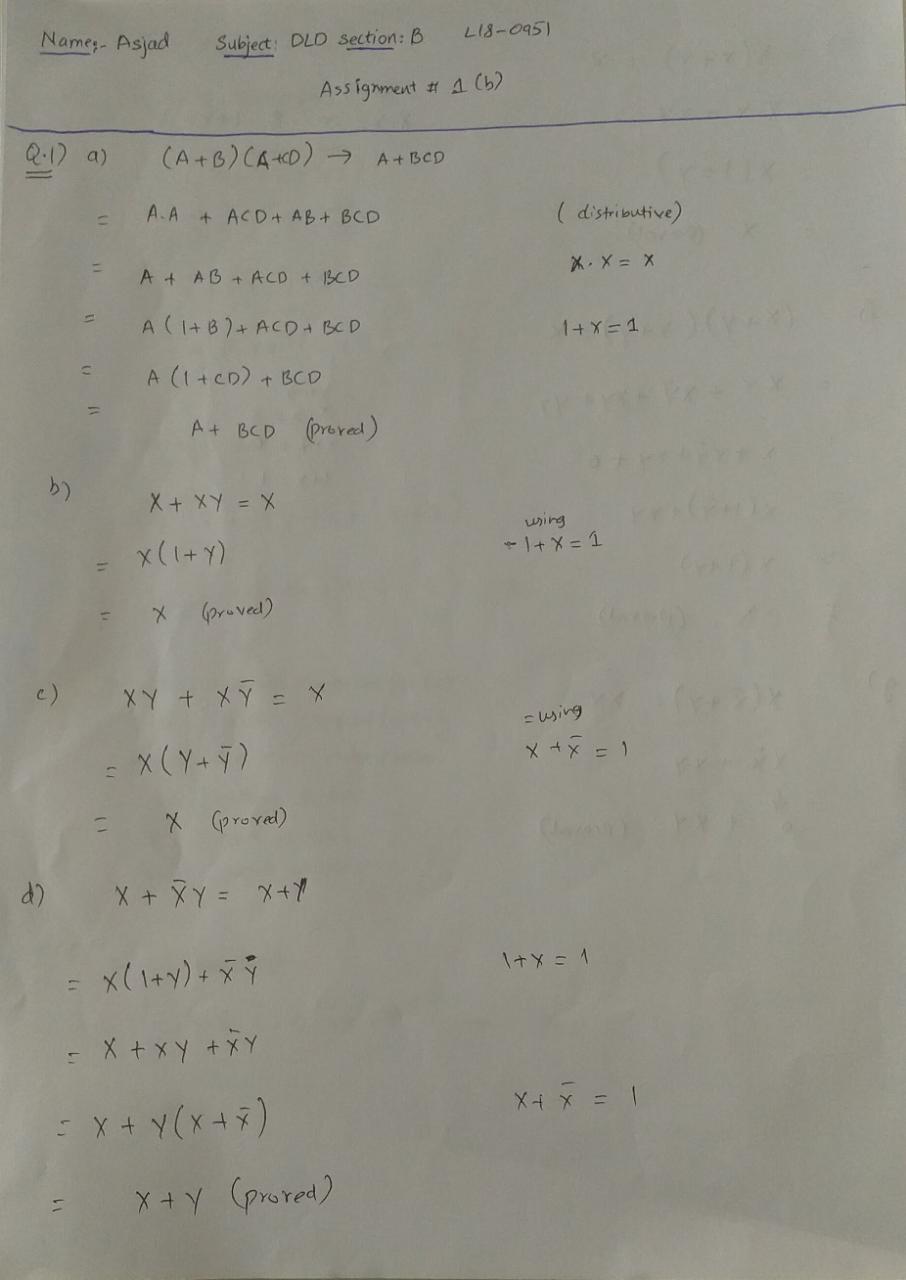 Name:- Asjad Subject: DLD Section: B L18-0951
Assignment # 1 (b)
Q.1) a) (A+B)(A+CD) → A+BCD
= A.A + ACD + AB + BCD (distributive)
= A + AB + ACD + BCD X.X = X
= A(1+B)+ACD+BCD 1+X=1
= A(1+CD)+BCD
= A+ BCD (proved)
b) X + XY = X
= X(1+Y) using
1+X=1
= X (proved)
c) XY + XȲ = X
= X(Y+Ȳ) = using
X+X̄ = 1
= X (proved)
d) X + X̄Y = X+Y
= X(1+Y)+X̄Y 1+X=1
= X + XY + X̄Y
= X + Y(X+X̄) X+X̄ = 1
= X+Y (proved)